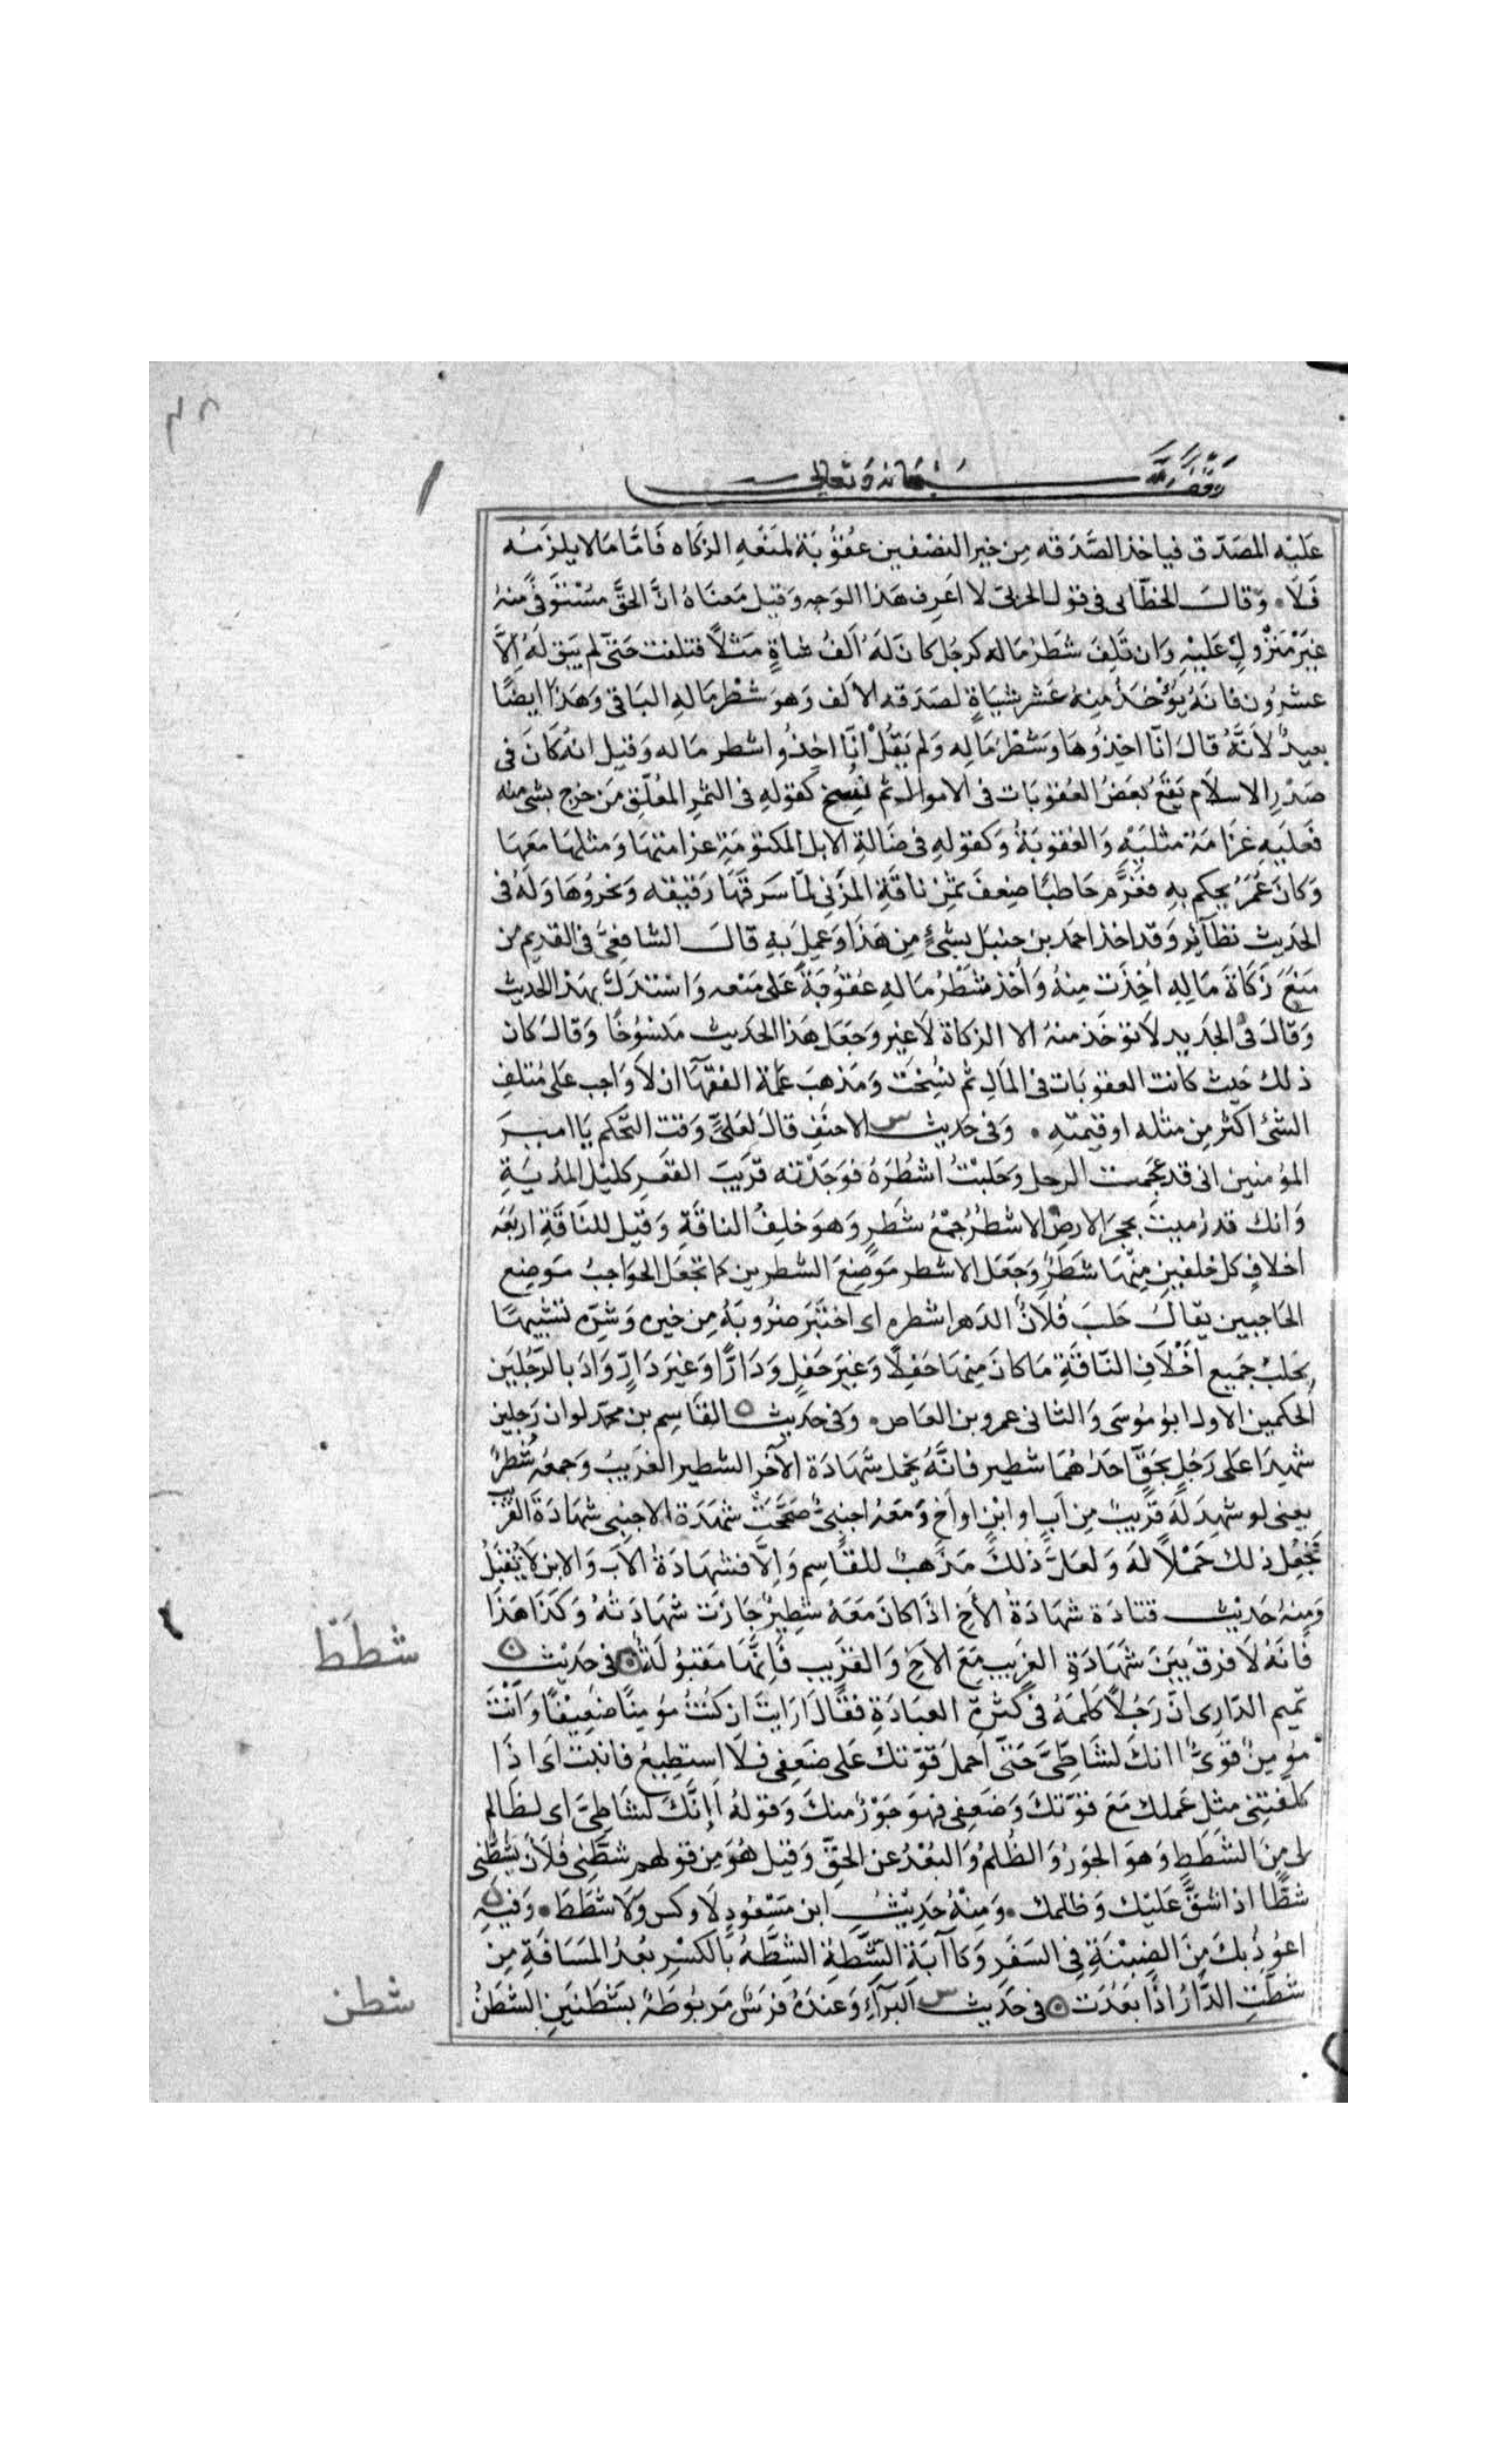 ٣٨
وقف لله سبحانه وتعالى
عَليْه المصَدّق فياخذ الصَّدَقه مِن خير النصْفين عقُوبَة لمنعِه الزكاه فَامَّا مَا لا يلزمُه
فَلَا. وقالَ الخطّابى فى قول الحربىّ لا اعَرِف هَذا الوَجه وَقيل مَعنَاهُ انَّ الحقَّ مسْتوفًى منهُ
غيرَ مَترُوكٍ عَليْهِ وَان تَلِفَ شَطرُ ماله كرجُل كانَ لَهُ اَلفُ شاةٍ مَثلاً فتلفت حَتى لم يَبق لَهُ اِلّا
عشرُون فانهُ يُؤْخذ مِنهُ عَشر شيَاةٍ لصَدَقه الالف وَهوَ شطْر مَالِهِ البَاقى وَهَذا ايضًا
بعيدٌ لاَنّهُ قال انّا اخِذُوهَا وَشَطْرَ مَالِه وَلم يَقُلْ انّا اخِذُوا شطر ماله وَقيل انهُ كَانَ فى
صَدْرِ الاسلَام تَقعُ بَعضُ العُقوبَات فى الاموال ثم نُسِخ كقولِهِ فى الثمرِ المُعَلَّقِ مَن خرج بشى منه
فَعليهِ غَرَامَة مثليَهِ وَالعُقوبَةُ وَكقولِهِ فى ضَالةِ الابل المكتومَةِ غرامتهَا وَمثلهَا مَعَهَا
وَكانَ عُمَرُ يحكم بهِ فغَرَّم حَاطبًا ضِعفَ ثمَنِ ناقَةِ المزَنى لمّا سَرقَهَا رَقيقه وَنحرُوهَا وَلَهُ فى
الحَديث نظائِر وَقد اخذ احمَد بن حنبَل بشئٍ مِن هَذَا وَعمِل بَهِ قالَ الشافِعىُّ فى القدِيم من
مَنَعَ زَكَاةَ مَالِهِ اُخِذَت مِنهُ وَاُخذ شَطْرُ مَالهِ عقُوبَةً عَلى مَنعه وَاسْتدَلَّ بهذا الحدَيث
وَقالَ فى الجَديدِ لَا تؤخَذ منهُ الا الزكاة لَا غير وَجَعَل هَذا الحدَيث مَنسُوخًا وَقالَ كان
ذلك حَيث كانت العقوبَات فى المَالِ ثم نسِختَ وَمَذهبَ عَامّة الفقهَآ ان لَا وَاجب عَلى مُتلفِ
الشئ اكثر مِن مثله او قيمته . وَفى حَديث س الاحنفِ قالَ لعَلىّ وَقت التحكم يَا امير
المؤمنين انى قد عَجَمت الرجل وَحَلبْتُ اَشْطُرَهُ فوَجَدْته قرَيبَ القَعرِ كليْلَ المدُيَةِ
وَانك قد رُميتَ بحجَرِ الارض الاشطُرُ جَمْعُ شَطرٍ وَهوَ خلِفُ الناقَةِ وَقيل للنَاقَةِ اربَعَه
اخلافٍ كل خلفين مِنهَا شَطَرٌ وَجَعَل الاشطر مَوضِعَ الشطرين كما تجعَل الحواجبُ مَوضِع
الحَاجبين يقالُ حَلبَ فُلَانٌ الدَهر اشطره اى اختبَر ضرُوبَهُ مِن خيره وَشرّه تشبيهًا
بحَلبِ جَميع اَخْلَافِ النّاقَةِ مَا كانَ مِنهَا حَفِلًا وَغيَرَ حَفلٍ وَدَارًّا وَغيرَ دَارٍّ وَارَادَ بالرّجُلينِ
الحكمين الاول ابو مُوسَى وَالثانى عمرو بن العَاص. وَفى حَديث ه القَاسِم بن محمّد لو ان رَجلين
شهِدَا على رَجُلٍ بحَقٍّ احَدهُمَا شَطير فانَّهُ يحمل شَهَادَة الآخَر الشطير الغَريبُ وَجمعهُ شُطُرٌ
يعنى لو شهِدَ لَهُ قَريبٌ مِن اَبٍ او ابْنٍ او اَخٍ وَمَعهُ اجنبِىٌّ صَحَّحَتْ شهَادَة الاجنبى شهَادَة القَريب
فجَعل ذلك حَمْلاً لهُ وَلعَلّ ذلك مَذهبٌ للقَاسِم وَاِلَّا فشهَادَةُ الاَبِ وَالابن لَا تُقبَلُ
وَمِنهُ حَديْث قتادَة شهَادَةُ الاَخ اذَا كانَ مَعَهُ شَطِيرٌ جَازَت شهَادَتهُ وَكذَا هَذَا
فَانّهُ لَا فرق بَينَ شَهَادَةِ الغريب مَعَ الاَخ وَالقَريب فَانّهَا مَقبُولَةٌ ه فى حَديْث ه
شطَطَ
تمِيم الدّارِى انّ رَجُلاً كَلمَهُ فى كثرةِ العبَادَةِ فقالَ ارَايتَ ان كنُتُ مُؤمِنًا ضعِيْفًا وَانتَ
مؤمِنٌ قوِىٌّ اانكَ لشَاطِىَّ حَتى اَحملَ قوّتكَ عَلى ضَعفِى فلَا استطيعُ فانبَتَّ اَى اذَا
كلفتنى مثل عَملك مَعَ قوّتكَ وَضَعفِى فهوَ جَوْرٌ منكَ وَقولهُ اَاِنَّكَ لشَاطِىَّ اى لظَالم
لى مِنَ الشَطَطِ وَهوَ الجوَرُ وَالظُلمُ وَالبُعْدُ عن الحقِّ وَقيل هُوَ مِن قولهم شطّنى فُلَانٌ يشُطُّنى
شَطًّا اذ اشقَّ عَليْك وَظلمك. وَمِنْهُ حَديْثُ ابن مَسْعُودٍ لَا وكس وَلَا شَطَط. وَفيهِ ه
اعوُذ بكَ مِنَ الضبْنَةِ فى السَفَرِ وَكَآبَة الشّطةِ الشَطَّهُ بالكسْرِ بُعدُ المَسَافَةِ مِن
شَطّتِ الدَّارُ اذَا بَعُدَت ه فى حَديث س البَرَآءِ وَعندَهُ فرَسٌ مَربُوطَةٌ بشَطَنينِ الشَطَنُ
شطن